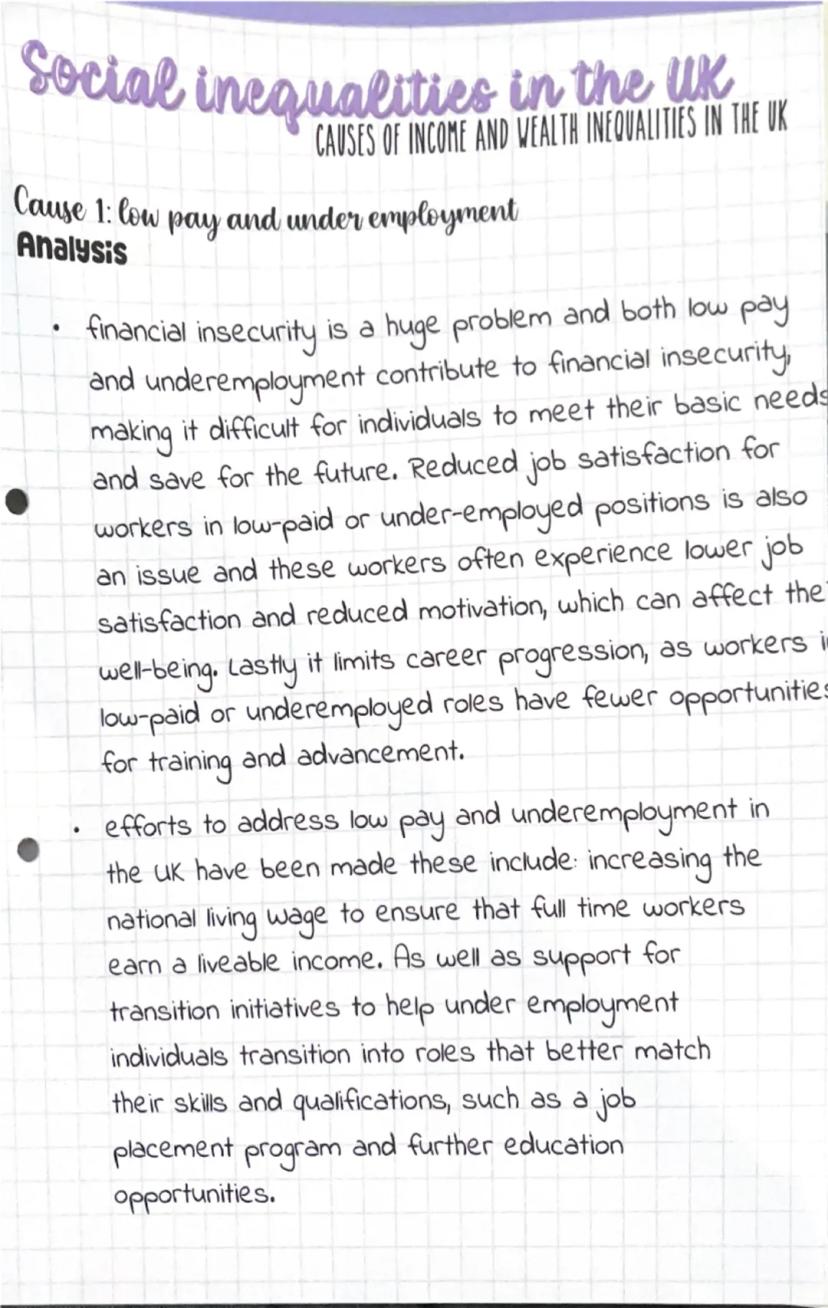 Social inequalities in the UK
CAUSES OF INCOME AND WEALTH INEQUALITIES IN THE UK
Cause 1: low pay and under employment
Analysis
• financial insecurity is a huge problem and both low pay
and underemployment contribute to financial insecurity,
making it difficult for individuals to meet their basic needs
and save for the future. Reduced job satisfaction for
workers in low-paid or under-employed positions is also
an issue and these workers often experience lower job
satisfaction and reduced motivation, which can affect the
well-being. Lastly it limits career progression, as workers
low-paid or underemployed roles have fewer opportunities
for training and advancement.
• efforts to address low pay and underemployment in
the UK have been made these include: increasing the
national living wage to ensure that full time workers
earn a liveable income. As well as support for
transition initiatives to help under employment
individuals transition into roles that better match
their skills and qualifications, such as a job
placement program and further education
opportunities.